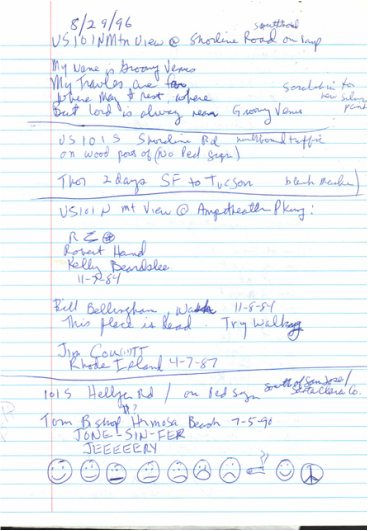 8/29/96
southbound
US 101 N Mtn View @ Shoreline Road on ramp
My name is Groovy Venus
My Travles are far
Where may I rest, where
But Lord is alway near Groovy Venus
scratched in
silver
paint
US 101 S Shoreline Rd northbound traffic
on wood post of (No Ped Sign)
Thor 2 days SF to Tucson black marker)
US 101 N Mt View @ Ampitheater Pkwy:
Robert Hand
Kelly Beardslee
11-7-84
Bill Bellingham, Wash 11-8-84
This place is dead. Try Walking
Jim
Rhode Island 4-7-87
101 S Hellyer Rd / on Ped Sign South of San Jose/
Santa Clara Co.
Tom Bishop Hermosa Beach 7-5-90
JONE-SIN-FER
JEEEEERY